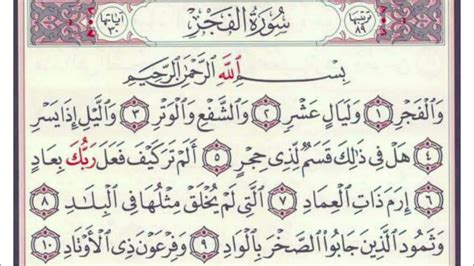 ترتيبها ٨٩ سُورَةُ الفَجْرِ آياتها ٣٠
بِسْمِ اللَّهِ الرَّحْمَٰنِ الرَّحِيمِ
وَالْفَجْرِ ١ وَلَيَالٍ عَشْرٍ ٢ وَالشَّفْعِ وَالْوَتْرِ ٣ وَاللَّيْلِ إِذَا يَسْرِ
٤ هَلْ فِي ذَٰلِكَ قَسَمٌ لِّذِي حِجْرٍ ٥ أَلَمْ تَرَ كَيْفَ فَعَلَ رَبُّكَ بِعَادٍ
٦ إِرَمَ ذَاتِ الْعِمَادِ ٧ الَّتِي لَمْ يُخْلَقْ مِثْلُهَا فِي الْبِلَادِ ٨
وَثَمُودَ الَّذِينَ جَابُوا الصَّخْرَ بِالْوَادِ ٩ وَفِرْعَوْنَ ذِي الْأَوْتَادِ ١٠